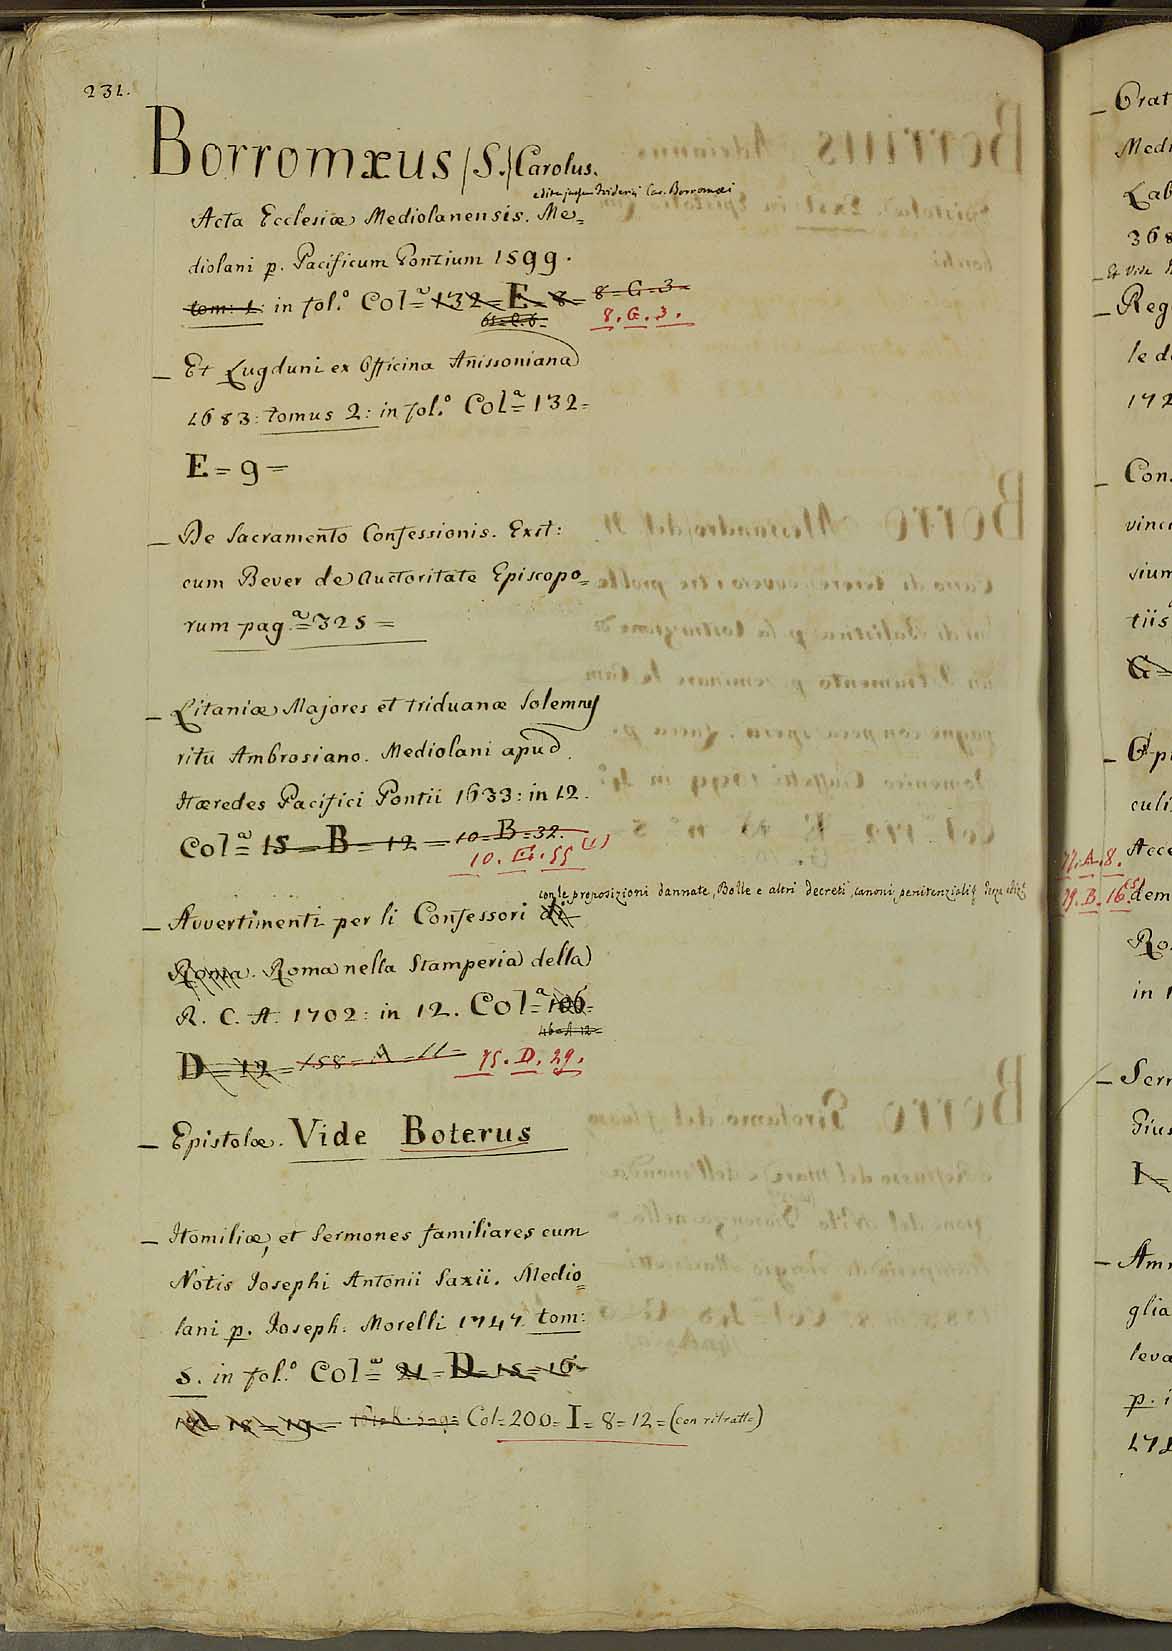 231.
Borromæus /S./ Carolus.
edita jussu Friderici Car. Borromæi
Acta Ecclesiæ Mediolanensis. Me=
diolani p. Pacificum Pontium 1599.
tom: 1: in fol.º Colª= 132= E= 8= 8=G=3=
8. G. 3.
_ Et Lugduni ex Officina Anissoniana
1683: tomus 2: in fol.º Colª= 132=
E= 9=
_ De Sacramento Confessionis. Exit:
cum Bever de Auctoritate Episcopo=
rum pag.ª= 325=
_ Litaniæ Majores et triduanæ Solemnes
ritu Ambrosiano. Mediolani apud
Hæredes Pacifici Pontii 1633: in 12.
Colª= 15= B= 12= 10=B=32.
10. E. 55 (1)
con le proposizioni dannate, Bolle e altri decreti, canoni penitenziali
_ Avvertimenti per li Confessori di
Roma. Roma nella Stamperia della
R. C. A. 1702: in 12. Colª= 106=
46=A 12=
D= 12= 158=A=11= 75. D. 29.
_ Epistolæ. Vide Boterus
_ Homiliæ, et Sermones familiares cum
Notis Josephi Antonii Saxii. Medio=
lani p. Joseph: Morelli 1747 tom:
5. in fol.º Colª= 21= D= 15= 16=
18= 19= Col=200= I= 8=12= (con ritratto)
_ Orat
Medi
Lab
368
_ Et Vide
_ Reg
le d
172
_ Con
vinc
sium
tiis
G=
_ Op
culi
17. A. 8.
Acce
79. B. 16
dem
Ro
in 1
_ Serm
Pius
I=
_ Am
glia
leva
p. i
17